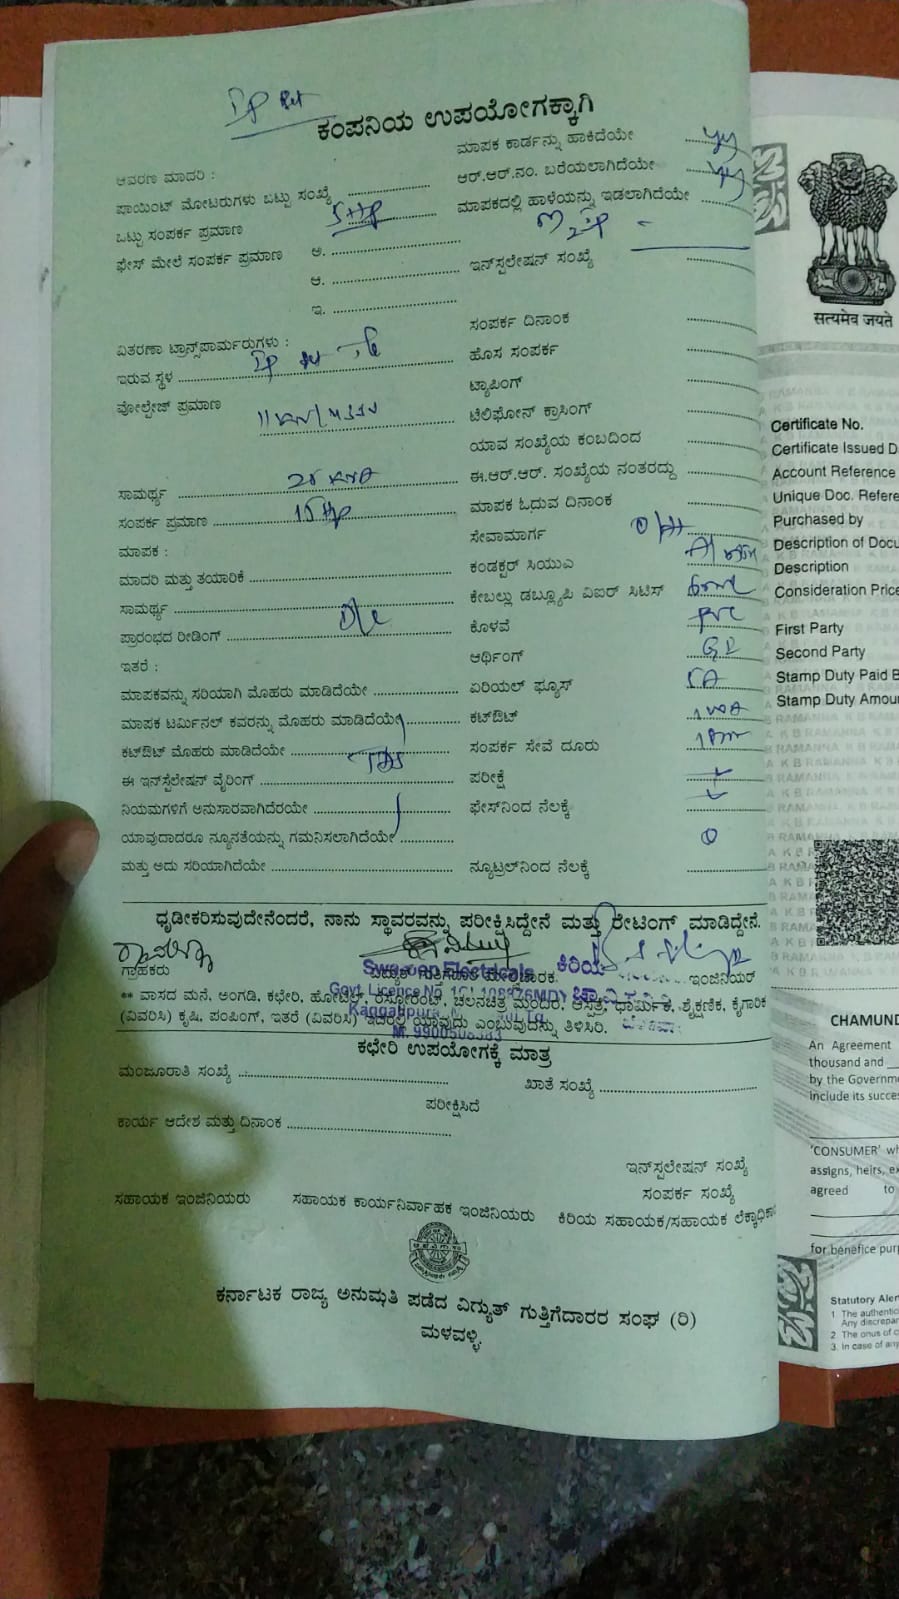 IP Set
ಕಂಪನಿಯ ಉಪಯೋಗಕ್ಕಾಗಿ
ಆವರಣ ಮಾದರಿ :
ಪಾಯಿಂಟ್ ಮೋಟರುಗಳು ಒಟ್ಟು ಸಂಖ್ಯೆ
ಒಟ್ಟು ಸಂಪರ್ಕ ಪ್ರಮಾಣ 5HP
ಫೇಸ್ ಮೇಲೆ ಸಂಪರ್ಕ ಪ್ರಮಾಣ ಅ.
ಆ.
ಇ.
ವಿತರಣಾ ಟ್ರಾನ್ಸ್‌ಪಾರ್ಮರುಗಳು :
ಇರುವ ಸ್ಥಳ IP Set
ವೋಲ್ಟೇಜ್ ಪ್ರಮಾಣ
ಸಾಮರ್ಥ್ಯ 25 KVA
ಸಂಪರ್ಕ ಪ್ರಮಾಣ 15 HP
ಮಾಪಕ :
ಮಾದರಿ ಮತ್ತು ತಯಾರಿಕೆ
ಸಾಮರ್ಥ್ಯ
ಪ್ರಾರಂಭದ ರೀಡಿಂಗ್
ಇತರೆ :
ಮಾಪಕವನ್ನು ಸರಿಯಾಗಿ ಮೊಹರು ಮಾಡಿದೆಯೇ
ಮಾಪಕ ಟರ್ಮಿನಲ್ ಕವರನ್ನು ಮೊಹರು ಮಾಡಿದೆಯೇ
ಕಟ್‌ಔಟ್ ಮೊಹರು ಮಾಡಿದೆಯೇ
ಈ ಇನ್‌ಸ್ಟೆಲೇಷನ್ ವೈರಿಂಗ್
ನಿಯಮಗಳಿಗೆ ಅನುಸಾರವಾಗಿದೆರಯೇ
ಯಾವುದಾದರೂ ನ್ಯೂನತೆಯನ್ನು ಗಮನಿಸಲಾಗಿದೆಯೇ
ಮತ್ತು ಅದು ಸರಿಯಾಗಿದೆಯೇ
ಮಾಪಕ ಕಾರ್ಡನ್ನು ಹಾಕಿದೆಯೇ yes
ಆರ್.ಆರ್.ನಂ. ಬರೆಯಲಾಗಿದೆಯೇ yes
ಮಾಪಕದಲ್ಲಿ ಹಾಳೆಯನ್ನು ಇಡಲಾಗಿದೆಯೇ
ಇನ್‌ಸ್ಟಲೇಷನ್ ಸಂಖ್ಯೆ
ಸಂಪರ್ಕ ದಿನಾಂಕ
ಹೊಸ ಸಂಪರ್ಕ
ಟ್ಯಾಪಿಂಗ್
ಟೆಲಿಫೋನ್ ಕ್ರಾಸಿಂಗ್
ಯಾವ ಸಂಖ್ಯೆಯ ಕಂಬದಿಂದ
ಈ.ಆರ್.ಆರ್. ಸಂಖ್ಯೆಯ ನಂತರದ್ದು
ಮಾಪಕ ಓದುವ ದಿನಾಂಕ
ಸೇವಾಮಾರ್ಗ O/H
ಕಂಡಕ್ಟರ್ ಸಿಯುಎ
ಕೇಬಲ್ಲು ಡಬ್ಲ್ಯೂಪಿ ವಿಐರ್ ಸಿಟಿಸ್
ಕೊಳವೆ PVC
ಆರ್ಥಿಂಗ್ GI
ಏರಿಯಲ್ ಫ್ಯೂಸ್ 5A
ಕಟ್‌ಔಟ್
ಸಂಪರ್ಕ ಸೇವೆ ದೂರು
ಪರೀಕ್ಷೆ
ಫೇಸ್‌ನಿಂದ ನೆಲಕ್ಕೆ
ನ್ಯೂಟ್ರಲ್‌ನಿಂದ ನೆಲಕ್ಕೆ
ಧೃಡೀಕರಿಸುವುದೇನೆಂದರೆ, ನಾನು ಸ್ಥಾವರವನ್ನು ಪರೀಕ್ಷಿಸಿದ್ದೇನೆ ಮತ್ತು ರೇಟಿಂಗ್ ಮಾಡಿದ್ದೇನೆ.
ಗ್ರಾಹಕರು ವಿದ್ಯುತ್ ಗುತ್ತಿಗೆದಾರ ಕಿರಿಯ ಇಂಜಿನಿಯರ್
Electricals
Govt. Licence No.
M. 9900508383
** ವಾಸದ ಮನೆ, ಅಂಗಡಿ, ಕಛೇರಿ, ಹೋಟೆಲ್, ರೆಸ್ಟೋರೆಂಟ್, ಚಲನಚಿತ್ರ ಮಂದಿರ, ಆಸ್ಪತ್ರೆ, ಧಾರ್ಮಿಕ, ಶೈಕ್ಷಣಿಕ, ಕೈಗಾರಿಕೆ
(ವಿವರಿಸಿ) ಕೃಷಿ, ಪಂಪಿಂಗ್, ಇತರೆ (ವಿವರಿಸಿ) ಇದರಲ್ಲಿ ಯಾವುದು ಎಂಬುವುದನ್ನು ತಿಳಿಸಿರಿ.
ಕಛೇರಿ ಉಪಯೋಗಕ್ಕೆ ಮಾತ್ರ
ಮಂಜೂರಾತಿ ಸಂಖ್ಯೆ
ಖಾತೆ ಸಂಖ್ಯೆ
ಪರೀಕ್ಷಿಸಿದೆ
ಕಾರ್ಯ ಆದೇಶ ಮತ್ತು ದಿನಾಂಕ
ಇನ್‌ಸ್ಟಲೇಷನ್ ಸಂಖ್ಯೆ
ಸಂಪರ್ಕ ಸಂಖ್ಯೆ
ಸಹಾಯಕ ಇಂಜಿನಿಯರು ಸಹಾಯಕ ಕಾರ್ಯನಿರ್ವಾಹಕ ಇಂಜಿನಿಯರು ಕಿರಿಯ ಸಹಾಯಕ/ಸಹಾಯಕ
ಕರ್ನಾಟಕ ರಾಜ್ಯ ಅನುಮತಿ ಪಡೆದ ವಿದ್ಯುತ್ ಗುತ್ತಿಗೆದಾರರ ಸಂಘ (ರಿ)
ಮಳವಳ್ಳಿ
सत्यमेव जयते
Certificate No.
Certificate Issued D
Account Reference
Unique Doc. Refere
Purchased by
Description of Docu
Description
Consideration Price
First Party
Second Party
Stamp Duty Paid B
Stamp Duty Amou
CHAMUND
An Agreement
thousand and
by the Governme
include its succes
'CONSUMER' wh
assigns, heirs, ex
agreed to
for benefice purp
Statutory Alert
1 The authentic
Any discrepan
2. The onus of c
3. In case of any